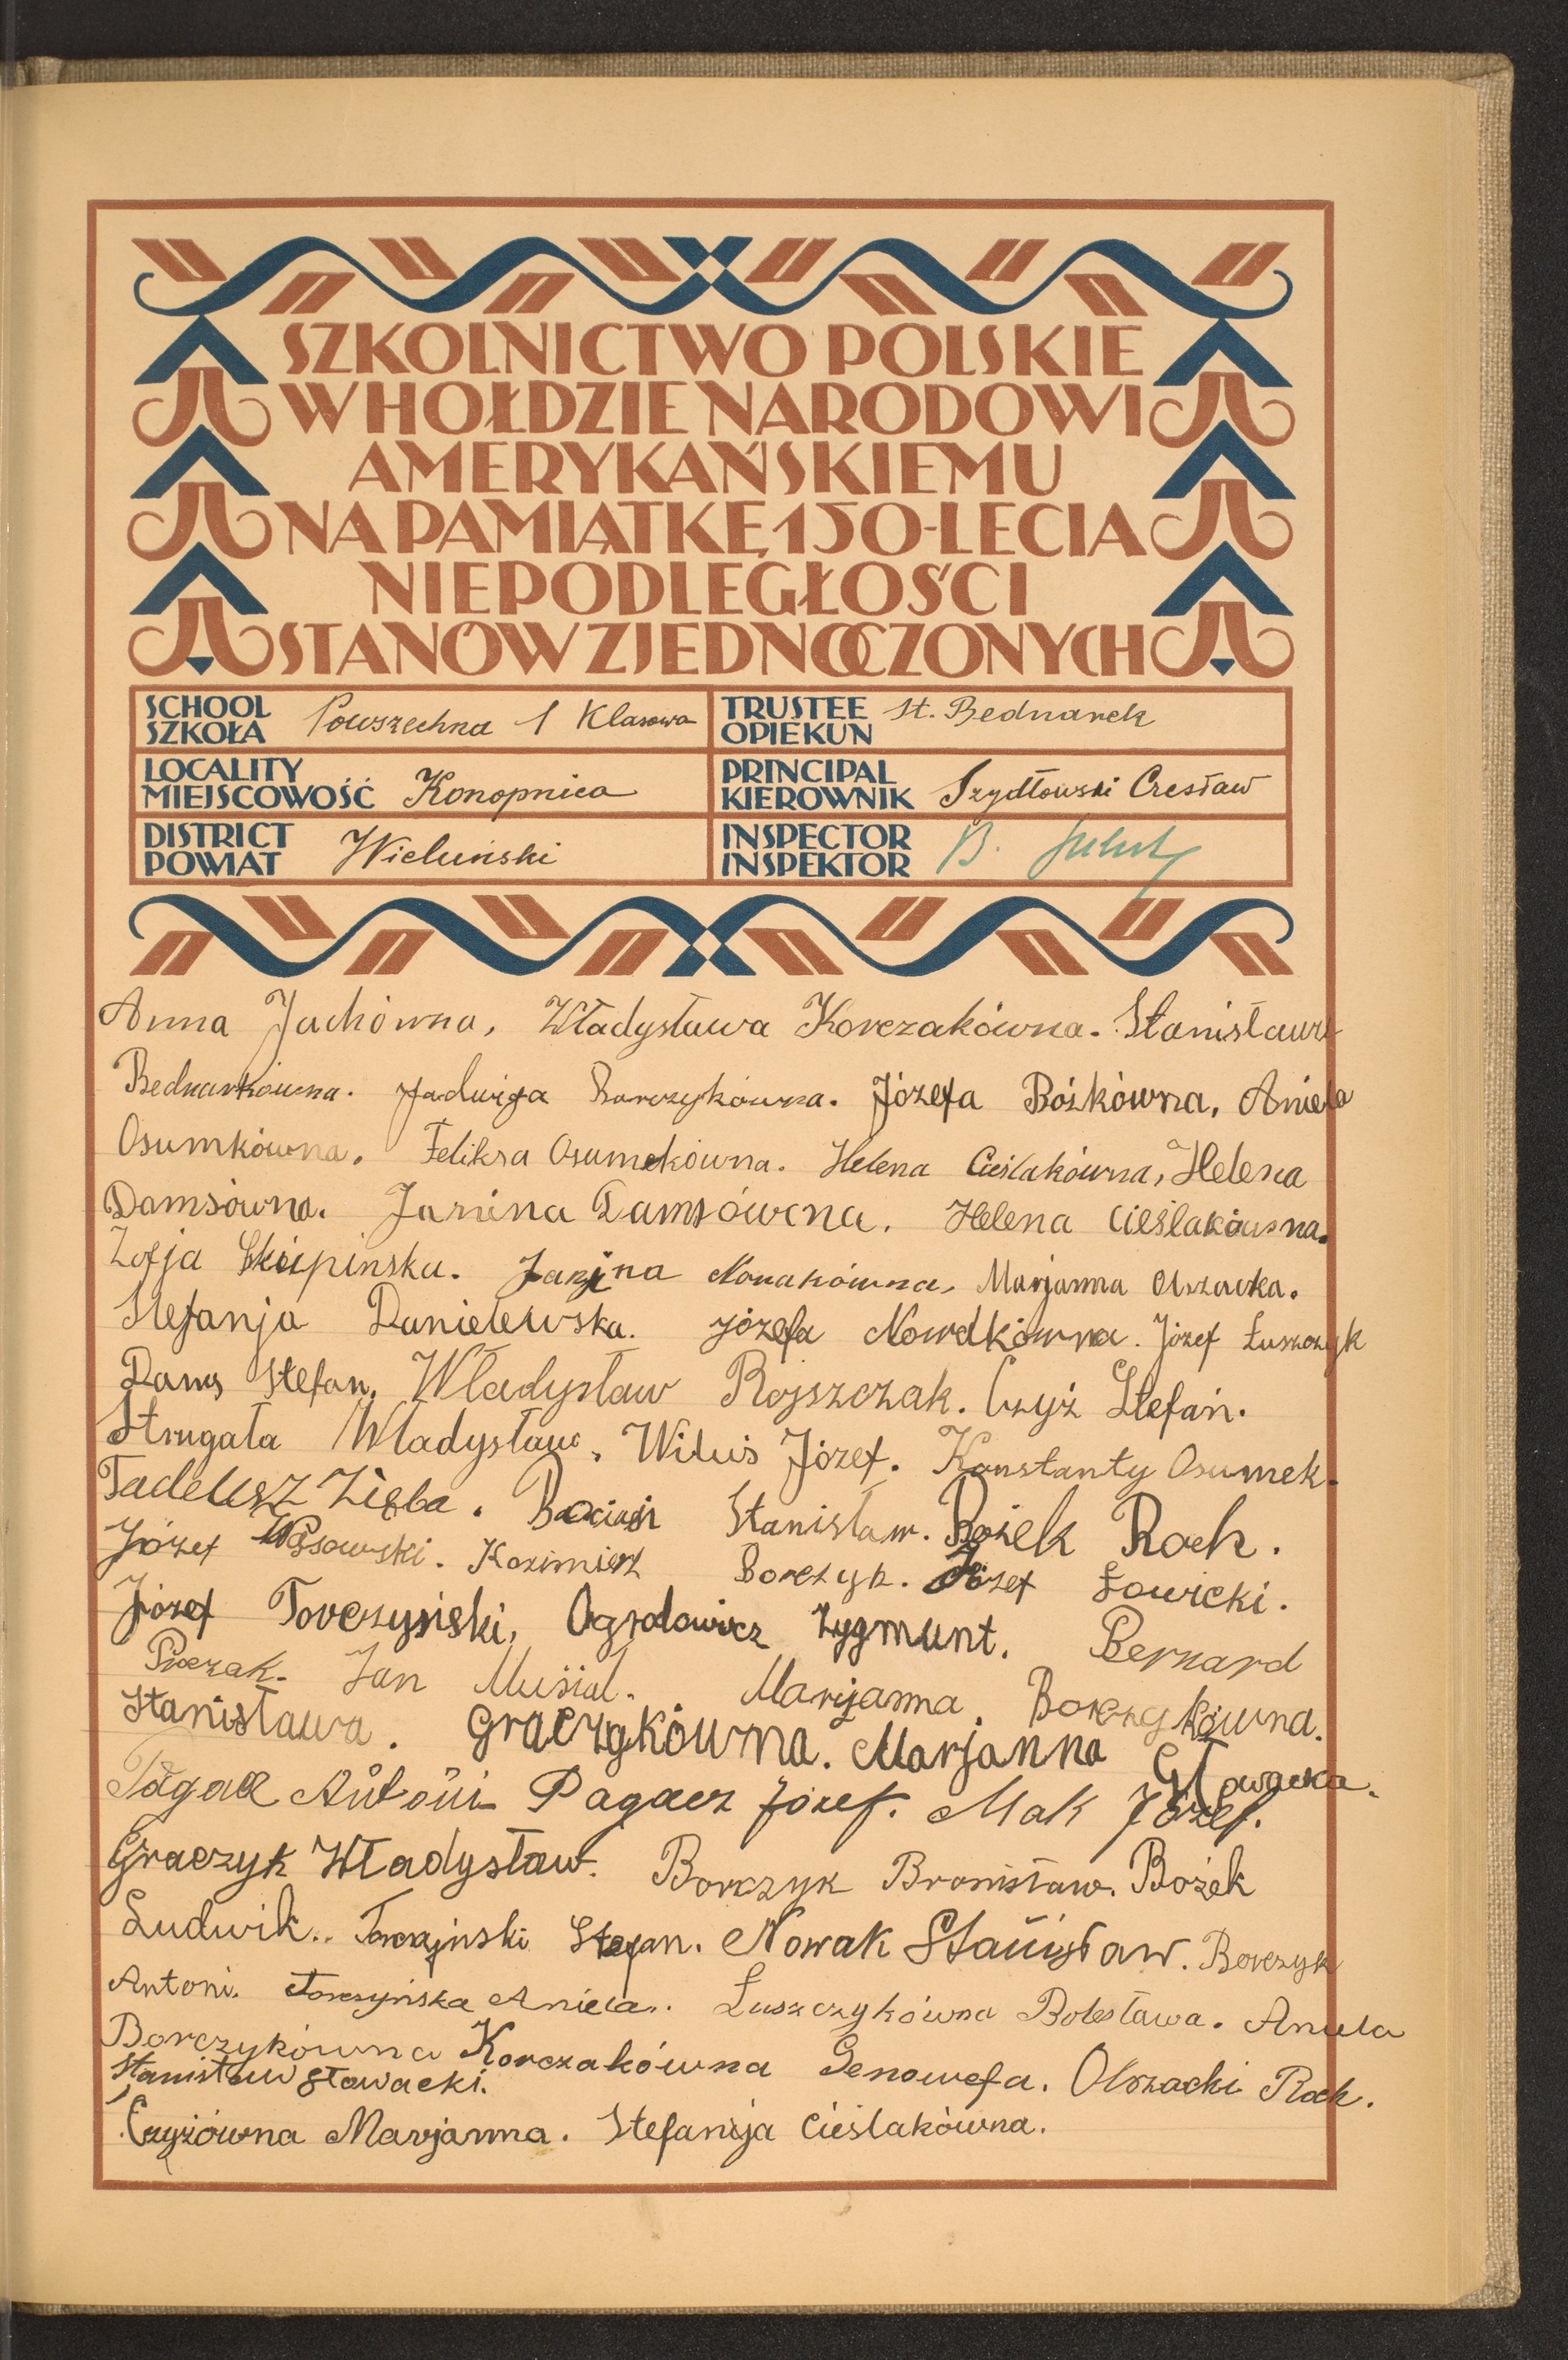 SZKOLNICTWO POLSKIE
W HOŁDZIE NARODOWI
AMERYKAŃSKIEMU
NA PAMIĄTKĘ 150-LECIA
NIEPODLEGŁOŚCI
STANÓW ZJEDNOCZONYCH
SCHOOL
SZKOŁA Powszechna 1 Klasowa
TRUSTEE
OPIEKUN St. Bednarek
LOCALITY
MIEJSCOWOŚĆ Konopnica
PRINCIPAL
KIEROWNIK Szydłowski Czesław
DISTRICT
POWIAT Wieluński
INSPECTOR
INSPEKTOR B.
Anna Jachówna, Władysława Korczakówna. Stanisława
Bednarkówna. Jadwiga Borczykówna. Józefa Bożkówna, Aniela
Osumkówna. Feliksa Osumekówna. Helena Cieślakówna, Helena
Damsówna. Janina Damsówcna. Helena Cieślakówna.
Zofja Skupinska. Janina Nowakówna, Marjanna Olszacka.
Stefanja Danielewska. Józefa Nowakówna. Józef Łuszczyk
Dams Stefan, Władysław Rojszczak. Czyż Stefan.
Strugała Władysław, Wiluś Józef. Konstanty Osumek.
Tadeusz Zięba. Stanisław. Bożek Roch.
Józef Wąsowski. Kazimierz Borczyk. Józef Łowicki.
Józef Torczyński, Ogrodowicz Zygmunt. Bernard
Jan Musiał. Marijanna. Borczykówna.
Stanisława. Graczykówna. Marjanna Słowacka.
Antoni Pagacz Józef. Mak Józef.
Graczyk Władysław. Borczyk Bronisław. Bożek
Ludwik. Torczyński Stefan. Nowak Stanisław. Borczyk
Antoni. Torczyńska Aniela. Łuszczykówna Bolesława. Aniela
Borczykówna Korczakówna Genowefa. Olszacki Roch.
Stanisław Słowacki.
Czyżówna Marjanna. Stefanija Cieślakówna.